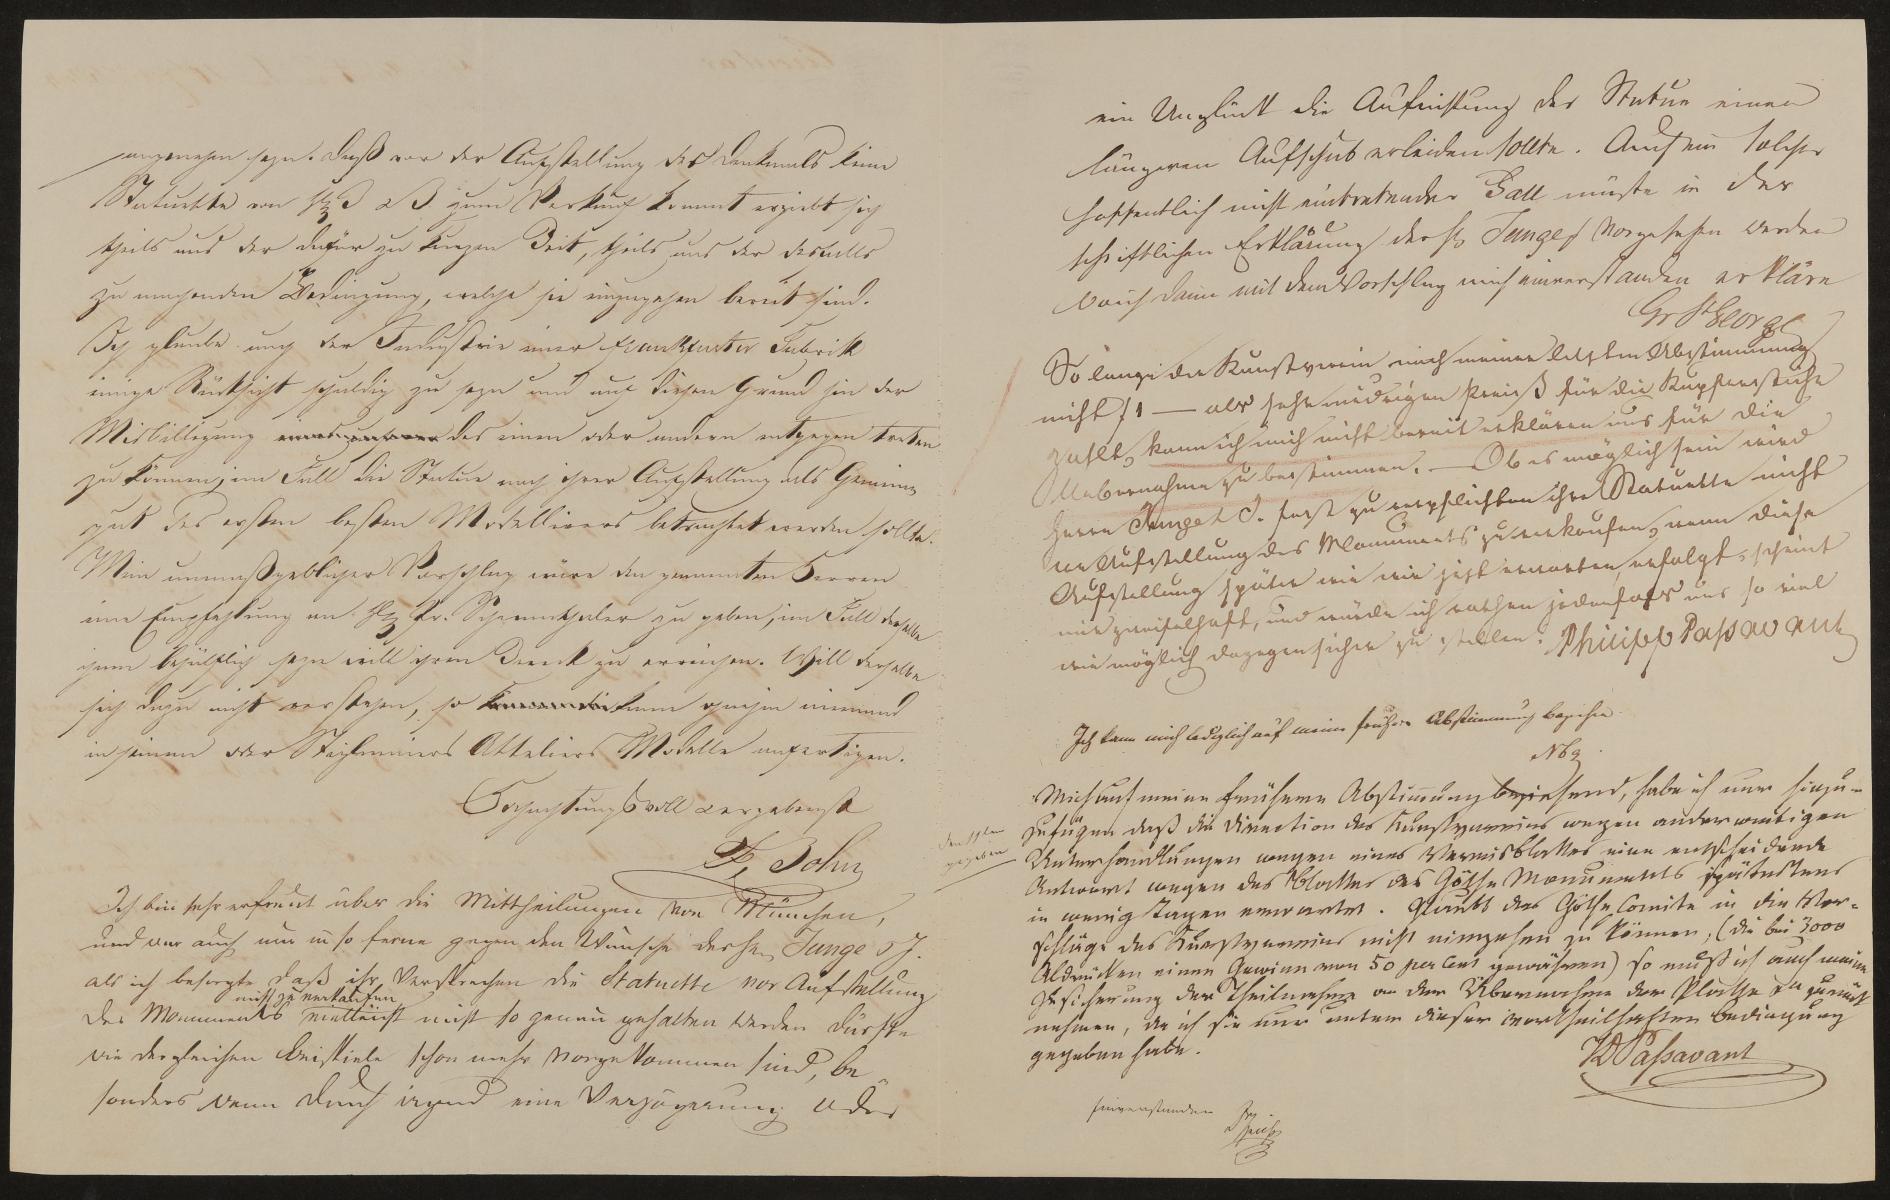 angenehm seyn. Daß vor der Aufstellung des Denkmals keine
Statuette von zum Verkauf kommt ergiebt sich
theils aus der dafür zu kurzen Zeit, theils aus der desfalls
zu machenden Bedingung, welche sie einzugehen bereit sind.
Ich glaube auch der Industrie einer Frankfurter Fabrik
einige Rücksicht schuldig zu seyn und auf diesen Grund hin der
Misbilligung des einen oder andern entgegen treten
zu können, im Fall die Statue nach ihrer Aufstellung als Gemein
gut des ersten besten Modellierers betrachtet werden sollte.
Mein unmaßgeblicher Vorschlag wäre den genannten Herren
eine Empfehlung an H. Schwanthaler zu geben, im Fall derselbe
ihnen behülflich seyn will ihren Zweck zu erreichen. Will derselbe
sich dazu nicht verstehen, so kann ohnehin niemand
in seinem oder Stiglmaiers Atteliers Modelle anfertigen.
Hochachtungsvoll u ergebenst
Ich bin sehr erfreut über die Mittheilungen von München,
und war auch nur in so ferne gegen den Wunsch der Hn Junge &
als ich besorgte daß ihr Versprechen die Statuette vor Aufstellung
nicht zu verkaufen
des Monuments vielleicht nicht so genau gehalten werden dürfte
wie dergleichen Beispiele schon mehr vorgekommen sind, be
sonders wenn durch irgend eine Verzögerung oder
ein Unglück die Aufrichtung der Statue einen
längeren Aufschub erleiden sollte. Auch ein solcher
hoffentlich nicht eintretender Fall müßte in der
schriftlichen Erklärung der H Junge vorgesehen werden
wo ich dann mit dem Vorschlag mich einverstanden erkläre
Gr St George
So lange der Kunstverein nach meiner letzten Abstimmung
nicht f 1 — als sehr niedrigen Preiß für die Kupferstiche
zahlt, kann ich mich nicht bereit erklären uns für die
Uebernahme zu bestimmen. — Ob es möglich sein wird
Herrn Junge & fest zu verpflichten ihre Statuette nicht
vor Aufstellung des Monuments zu verkaufen, wenn diese
Aufstellung später wie wir jetzt erwarten erfolgt, scheint
mir zweifelhaft, und würde ich rathen jedenfalls uns so viel
wie möglich dagegen sicher zu stellen. Philipp Passavant
Ich kann mich lediglich auf meine frühere Abstimmung beziehen.
Mich auf meine frühere Abstimmung beziehend, habe ich nur hinzu-
zufügen daß die Direction des Kunstvereins wegen anderweitigen
Unterhandlungen wegen eines Vereinsblattes eine entscheidende
Antwort wegen des Blattes des Göthe Monuments spätestens
in wenig Tagen erwartet. Glaubt das Göthe Comite in die Vor-
schläge des Kunstvereins nicht eingehen zu können, (die bei 3000
Abdrücken einen Gewinn von 50 per Cent gewähren) so muß ich auch meine
Zusicherung der Theilnahme an der Übernahme der Platte zurück
nehmen, da ich sie nur unter dieser vortheilhaften Bedingung
gegeben habe.
JD Passavant
einverstanden